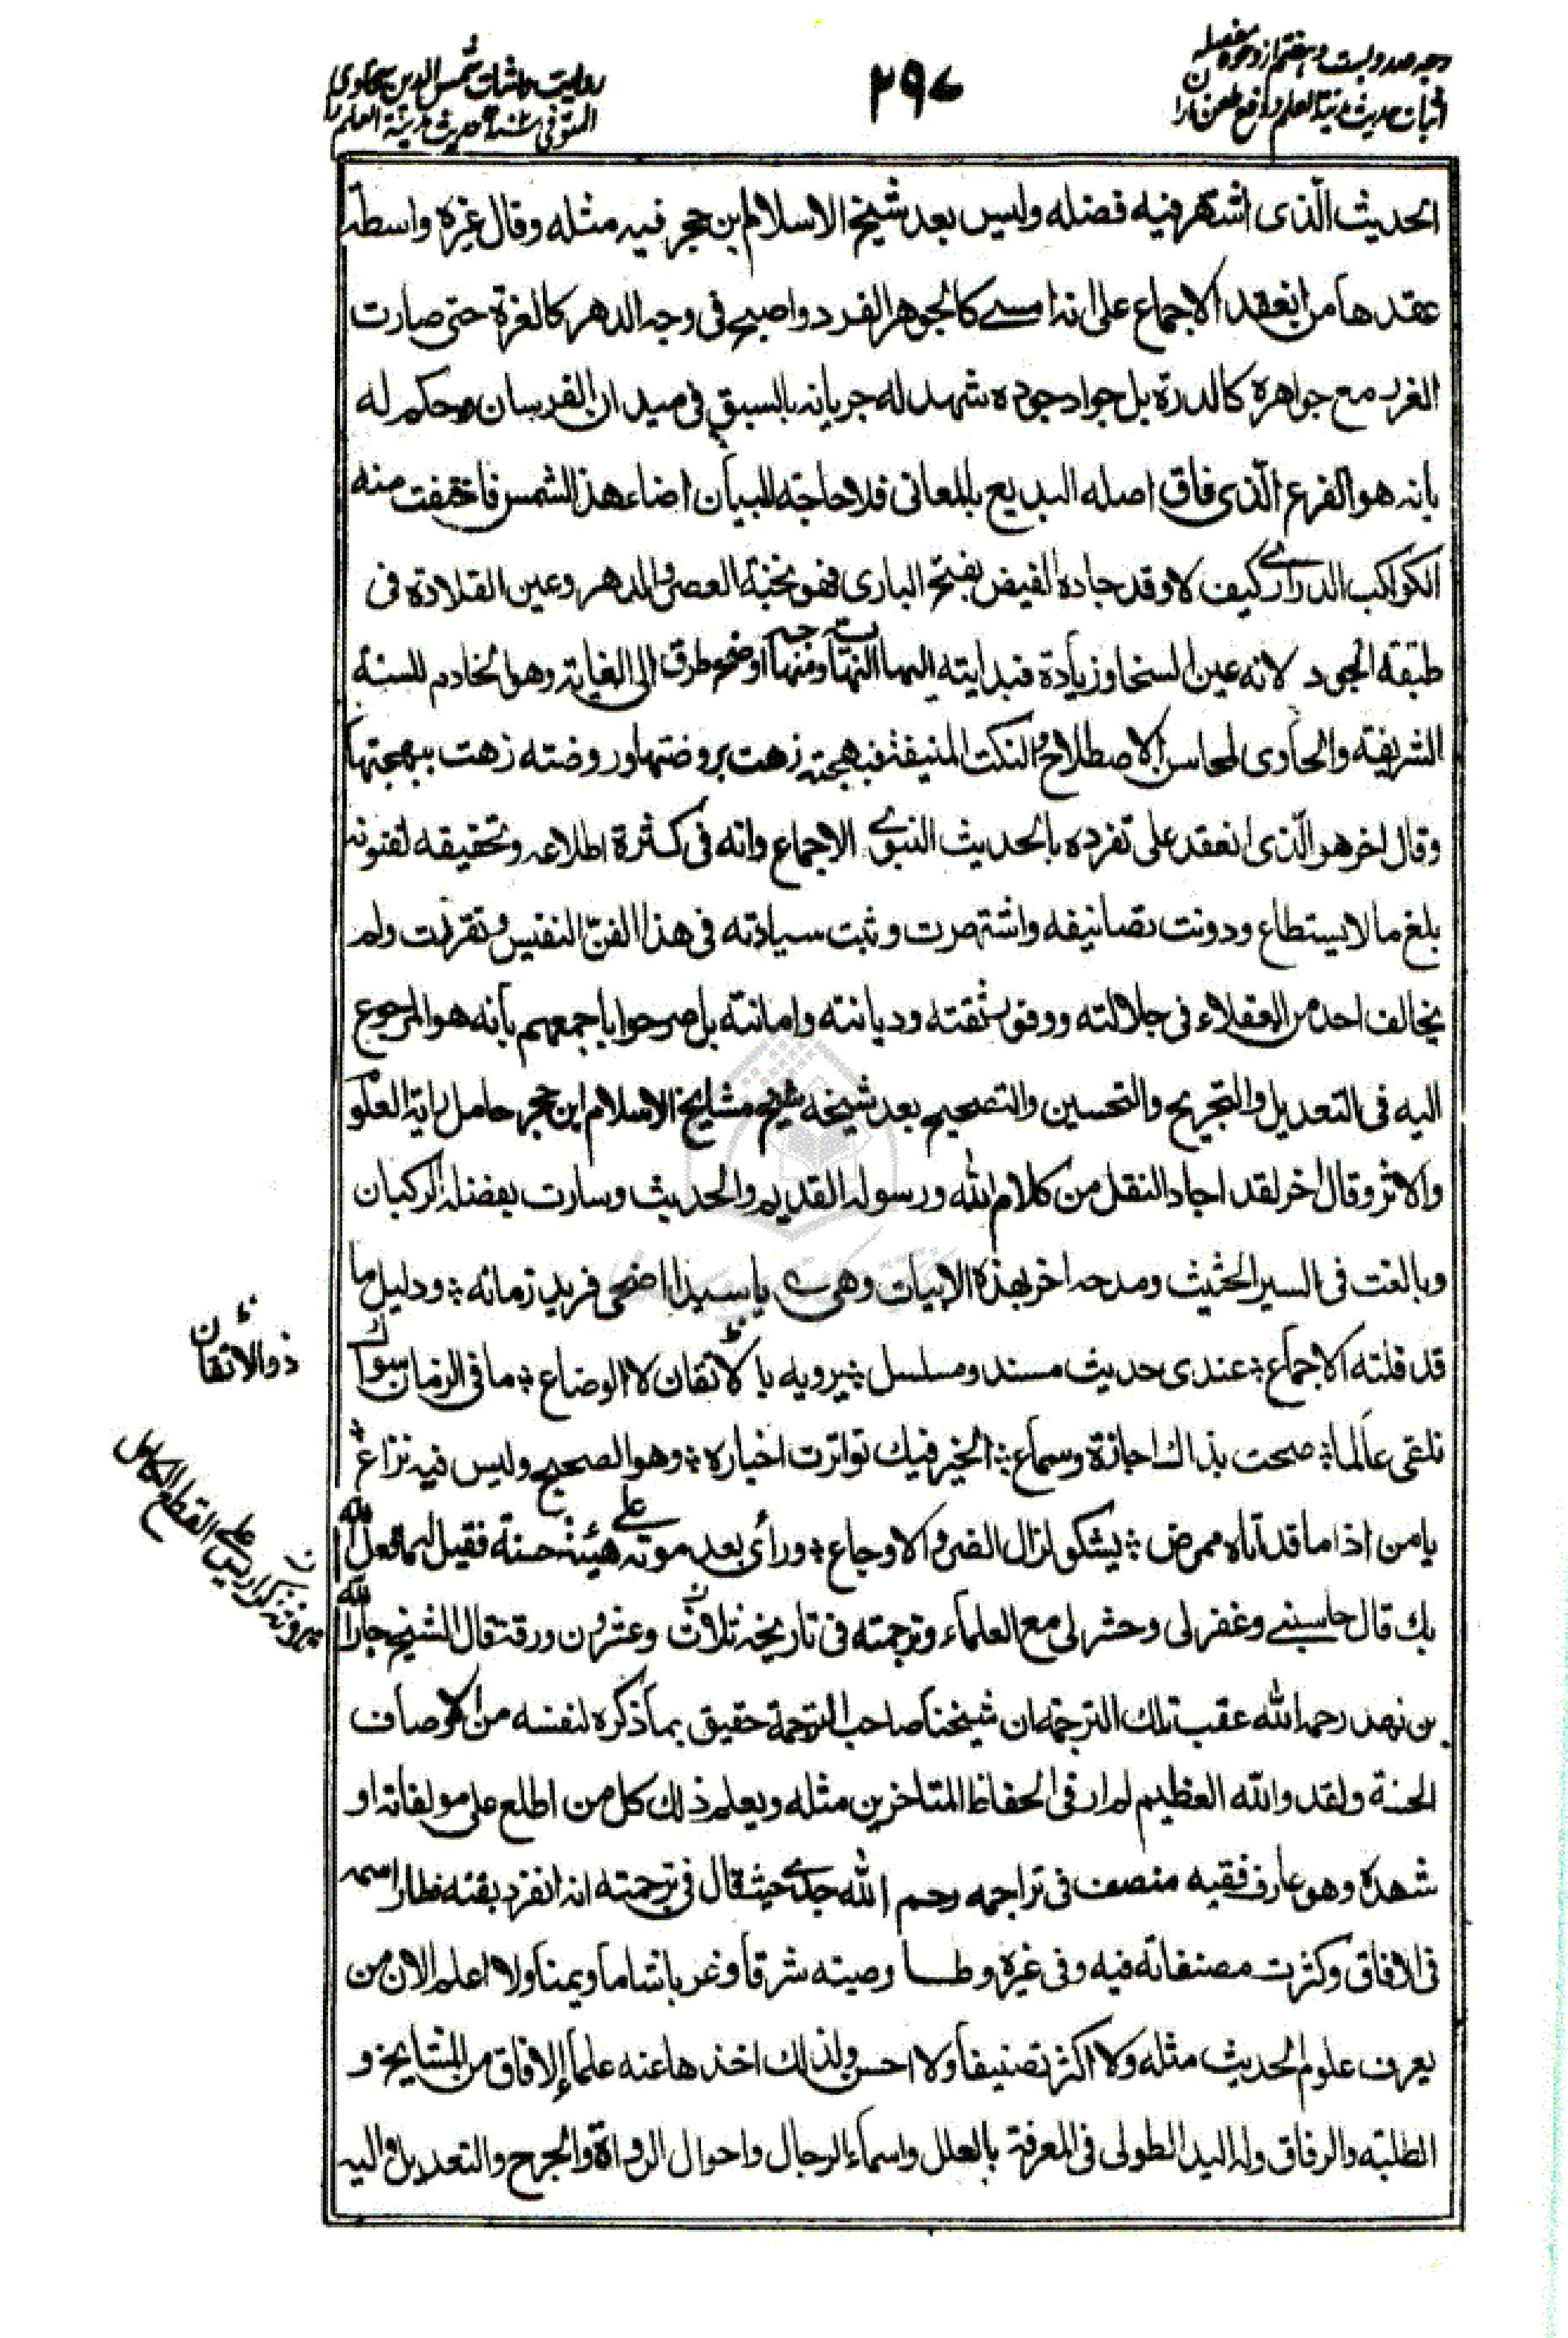 وجه صد و بست و هفتم از وجوه مفصله
اثبات حدیث مدینة العلم و دفع طعن نارا
۲۹۷
روایت و اثبات شمس الدین سخاوی
المتوفی سنه حدیث مدینة العلم را
الحديث الّذى اشتهر فيه فضله وليس بعد شيخ الاسلام بن حجر فيه مثله وقال غيره واسطة
عقدها من انعقد الاجماع على انه امسى كالجوهر الفرد واصبح فى وجه الدهر كالغرة حتى صارت
الغرر مع جواهره كالدرة بل جواد جوده شهد له جريانه بالسبق فى ميدان الفرسان وحكم له
بانه هو الفرع الّذى فاق اصله البديع بالمعانى فلا حاجة للبيان اضاء هذا الشمس فاختفت منه
الكواكب الدرارى كيف لا وقد جاده الفيض بفتح البارى فهو نخبة العصر والدهر وعين القلادة فى
طبقة الجود لانه عين السخا وزيادة فبدايته اليها النهاية ومنهاجه اوضح طرق الى الغاية وهو الخادم للسنة
الشريفة والحاوى لمحاسن الاصطلاح والنكت المنيفة فبهجته زهت بروضتها وروضته زهت ببهجتها
وقال اخر هو الّذى انعقد على تفرده بالحديث النبوى الاجماع وانه فى كثرة اطلاعه وتحقيقه لفنونه
بلغ ما لا يستطاع ودونت تصانيفه واشتهرت وثبت سيادته فى هذا الفنّ النفيس وتقررت ولم
يخالف احد من العقلاء فى جلالته ووفور ثقته وديانته وامانته بل صرحوا باجمعهم بأنه هو المرجوع
اليه فى التعديل والتجريح والتحسين والتصحيح بعد شيخه شيخ مشايخ الاسلام ابن حجر حامل راية العلوم
والاثر وقال اخر لقد اجاد النقل من كلام الله ورسوله القديم والحديث وسارت بفضله الركبان
وبالغت فى السير الحثيث ومدحه اخر بهذه الابيات وهى يا سيدا اضحى فريد زمانه ؛ ودليل ما
قد قلته الاجماع ؛ عندى حديث مسند ومسلسل ؛ يرويه بالاتقان لا الوضاع ؛ ما فى الزمان سواك
ذو الاتقان
نلقى عالما ؛ صحت بذاك اجازة وسماع ؛ الخير فيك تواترت اخباره ؛ وهو الصحيح وليس فيه نزاع
يا من اذا ما قد اتاه ممرض ؛ يشكو لزال الضر والاوجاع ؛ ورأى بعد موته على هيئة حسنة فقيل له ما فعل الله
بك قال حاسبنى وغفر لى وحشر لى مع العلماء وترجمته فى تاريخه ثلاث وعشرون ورقة قال الشيخ جار الله
بن فهد رحمه الله عقب تلك الترجمة ان شيخنا صاحب الترجمة حقيق بما ذكره لنفسه من الاوصاف
الحسنة ولقد والله العظيم لم ار فى الحفاظ المتاخرين مثله ويعلم ذلك كل من اطلع على مولفاته او
شهده وهو عارف فقيه منصف فى تراجمه رحم الله جدى حيث قال فى ترجمته انه انفرد بفنه فطار اسمه
فى الافاق وكثرت مصنفاته فيه وفى غيره وطار وصيته شرقا وغربا شاما ويمنا ولا اعلم الان من
يعرف علوم الحديث مثله ولا اكثر تصنيفا ولا احسن ولذلك اخذها عنه علماء الافاق من المشايخ و
الطلبة والرفاق وله اليد الطولى فى المعرفة بالعلل واسماء الرجال واحوال الرواة والجرح والتعديل واليه